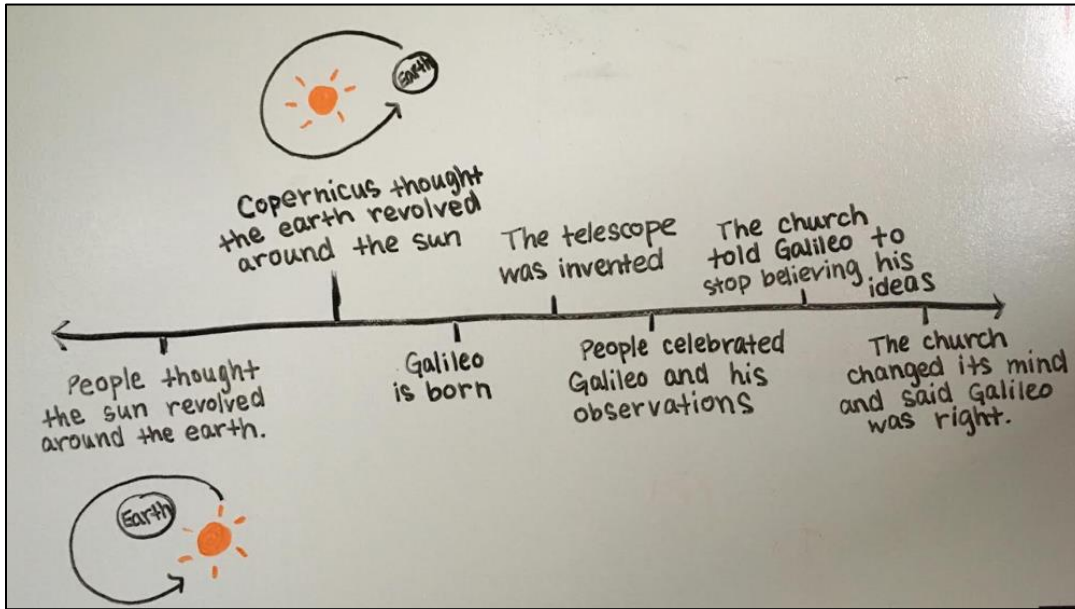 Earth
Copernicus thought
the earth revolved
around the sun
The telescope
was invented
The church
told Galileo to
stop believing his
ideas
People thought
the sun revolved
around the earth.
Galileo
is born
People celebrated
Galileo and his
observations
The church
changed its mind
and said Galileo
was right.
Earth